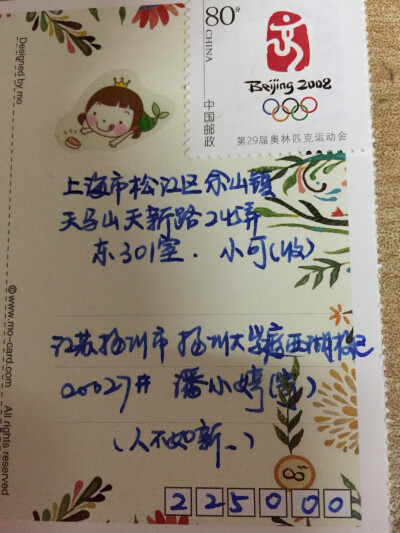 Designed by mo
80分
CHINA
中国邮政
Beijing 2008
第29届奥林匹克运动会
上海市松江区佘山镇
天马山天新路24弄
东301室. 小可(收)
江苏扬州市 扬州大学瘦西湖校区
00027# 潘小婷(寄)
(人不如新..)
©www.mo-card.com
All rights reserved
225000